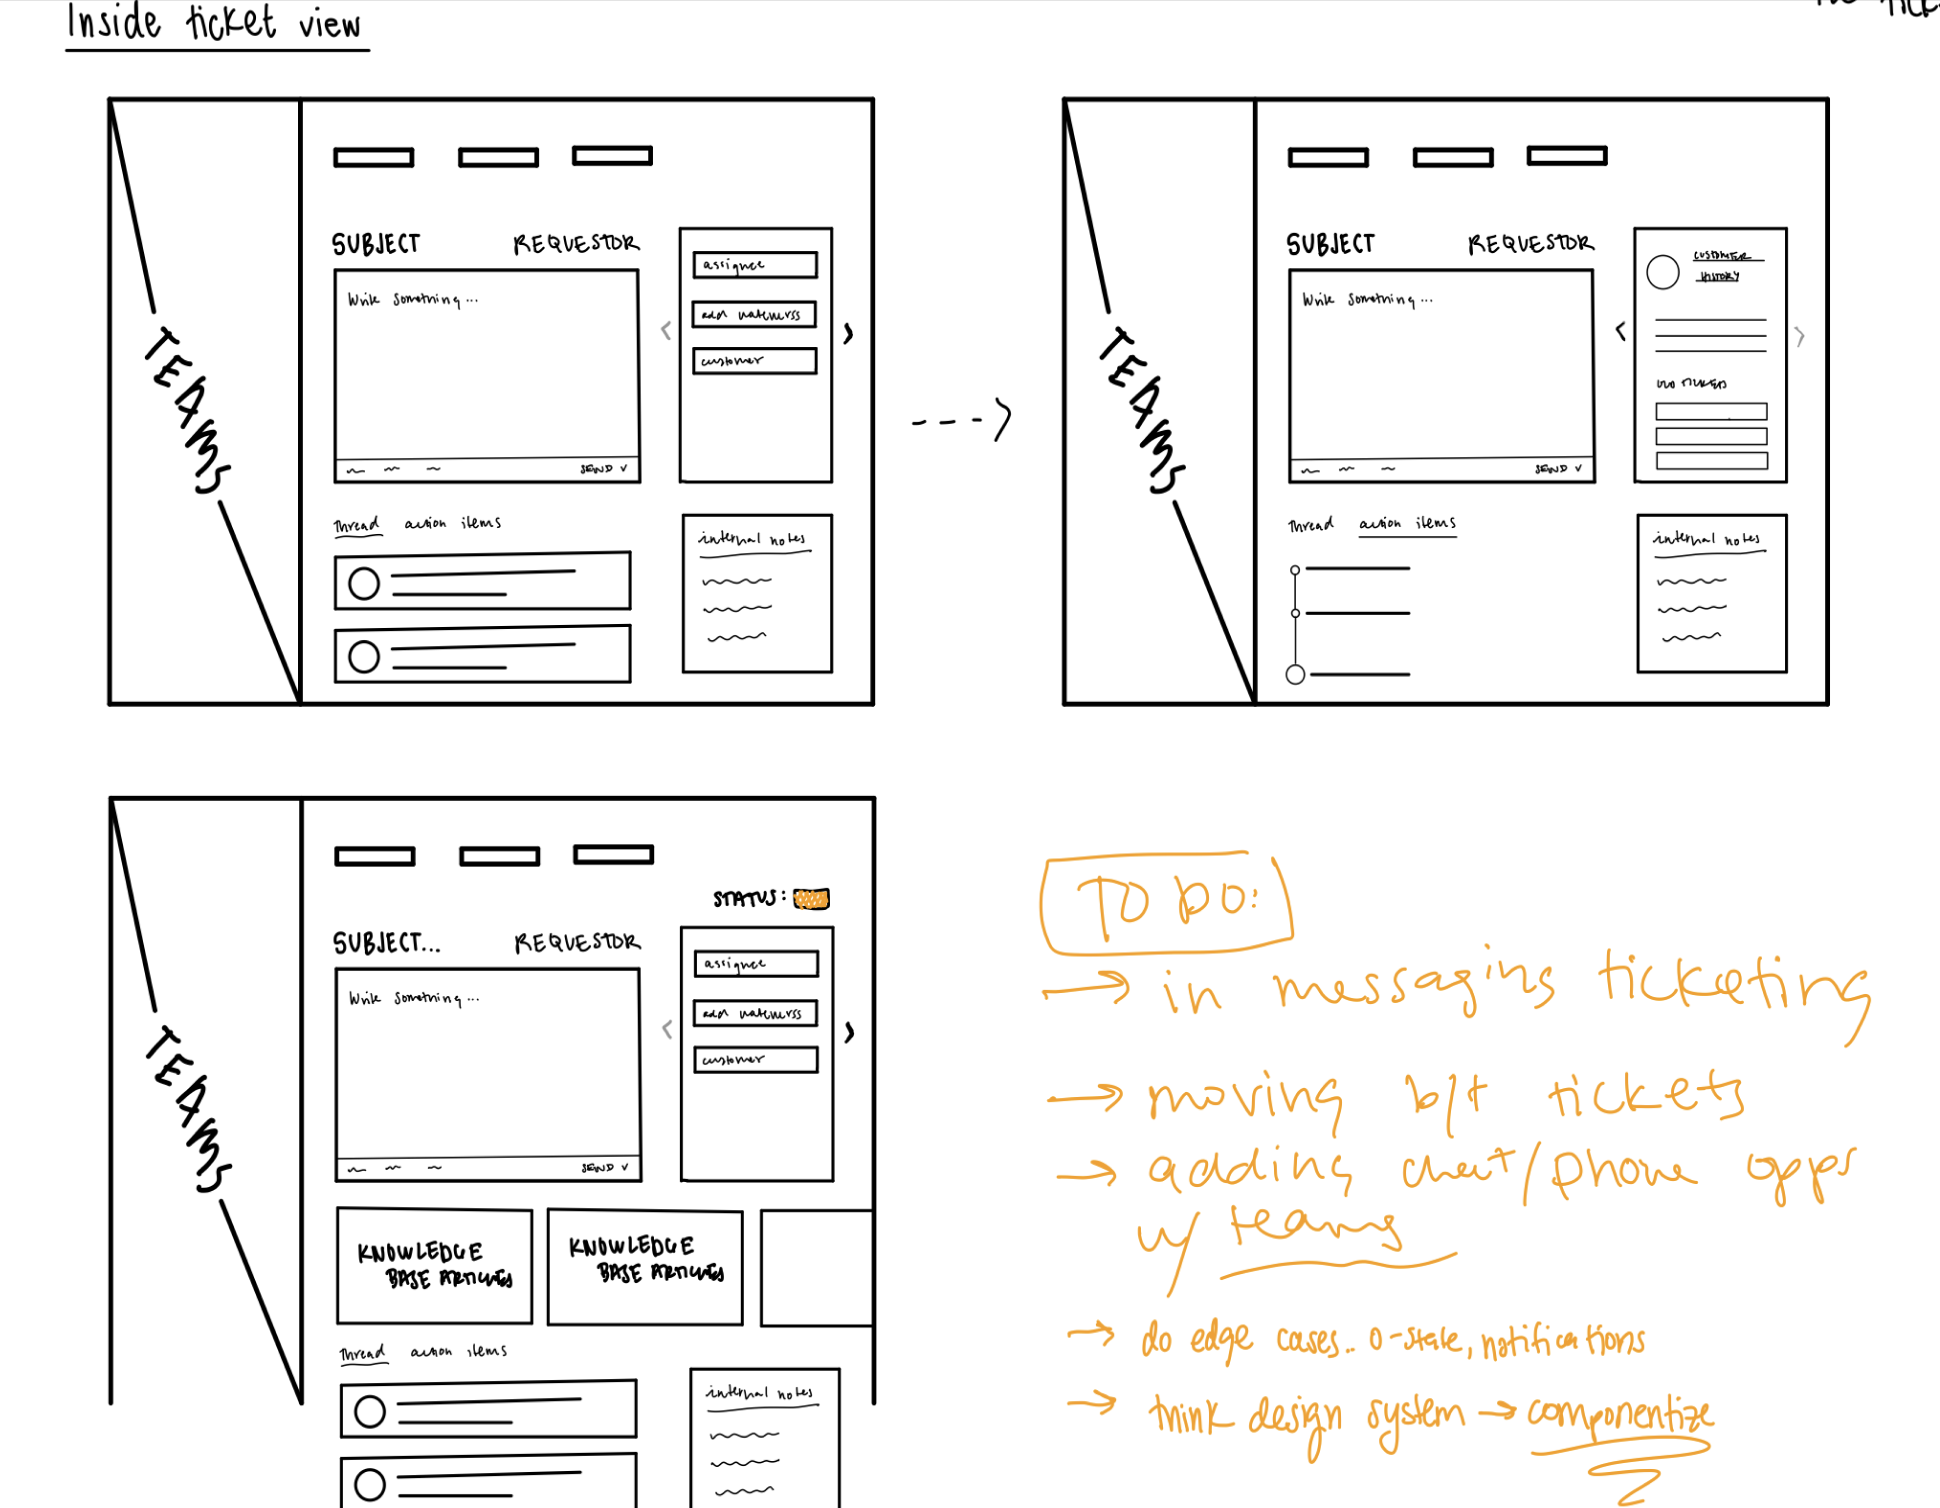 Inside ticket view
TEAMS
SUBJECT REQUESTOR
Write something...
SEND
assignee
customer
Thread action items
internal notes
TEAMS
SUBJECT REQUESTOR
Write something...
SEND
CUSTOMER
HISTORY
TICKETS
Thread action items
internal notes
TEAMS
STATUS:
SUBJECT... REQUESTOR
Write something...
SEND
assignee
customer
KNOWLEDGE
BASE ARTICLES
KNOWLEDGE
BASE ARTICLES
Thread action items
internal notes
TO DO:
→ in messaging ticketing
→ moving b/t tickets
→ adding chat/phone opps
w/ teams
→ do edge cases.. 0-state, notifications
→ think design system → componentize